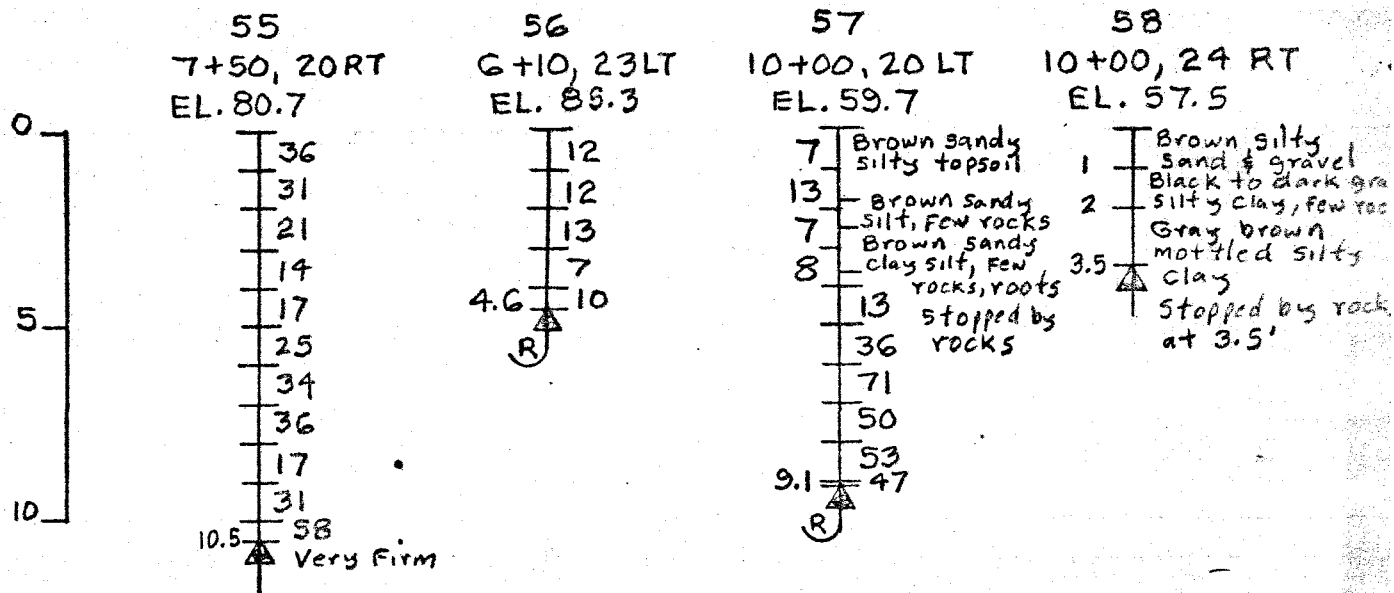 55
7+50, 20RT
EL. 80.7
0
5
10
36
31
21
14
17
25
34
36
17
31
58
10.5
Very Firm
56
6+10, 23LT
12
12
13
7
4.6
10
R
57
10+00, 20 LT
EL. 59.7
7
13
7
8
Brown sandy
silty topsoil
Brown sandy
silt, Few rocks
Brown sandy
clay silt, Few
rocks, roots
Stopped by
rocks
13
36
71
50
53
9.1
47
R
58
10+00, 24 RT
EL. 57.5
1
2
3.5
Brown silty
sand & gravel
Black to dark gra
silty clay, few roc
Gray brown
mottled silty
clay
Stopped by rock
at 3.5'